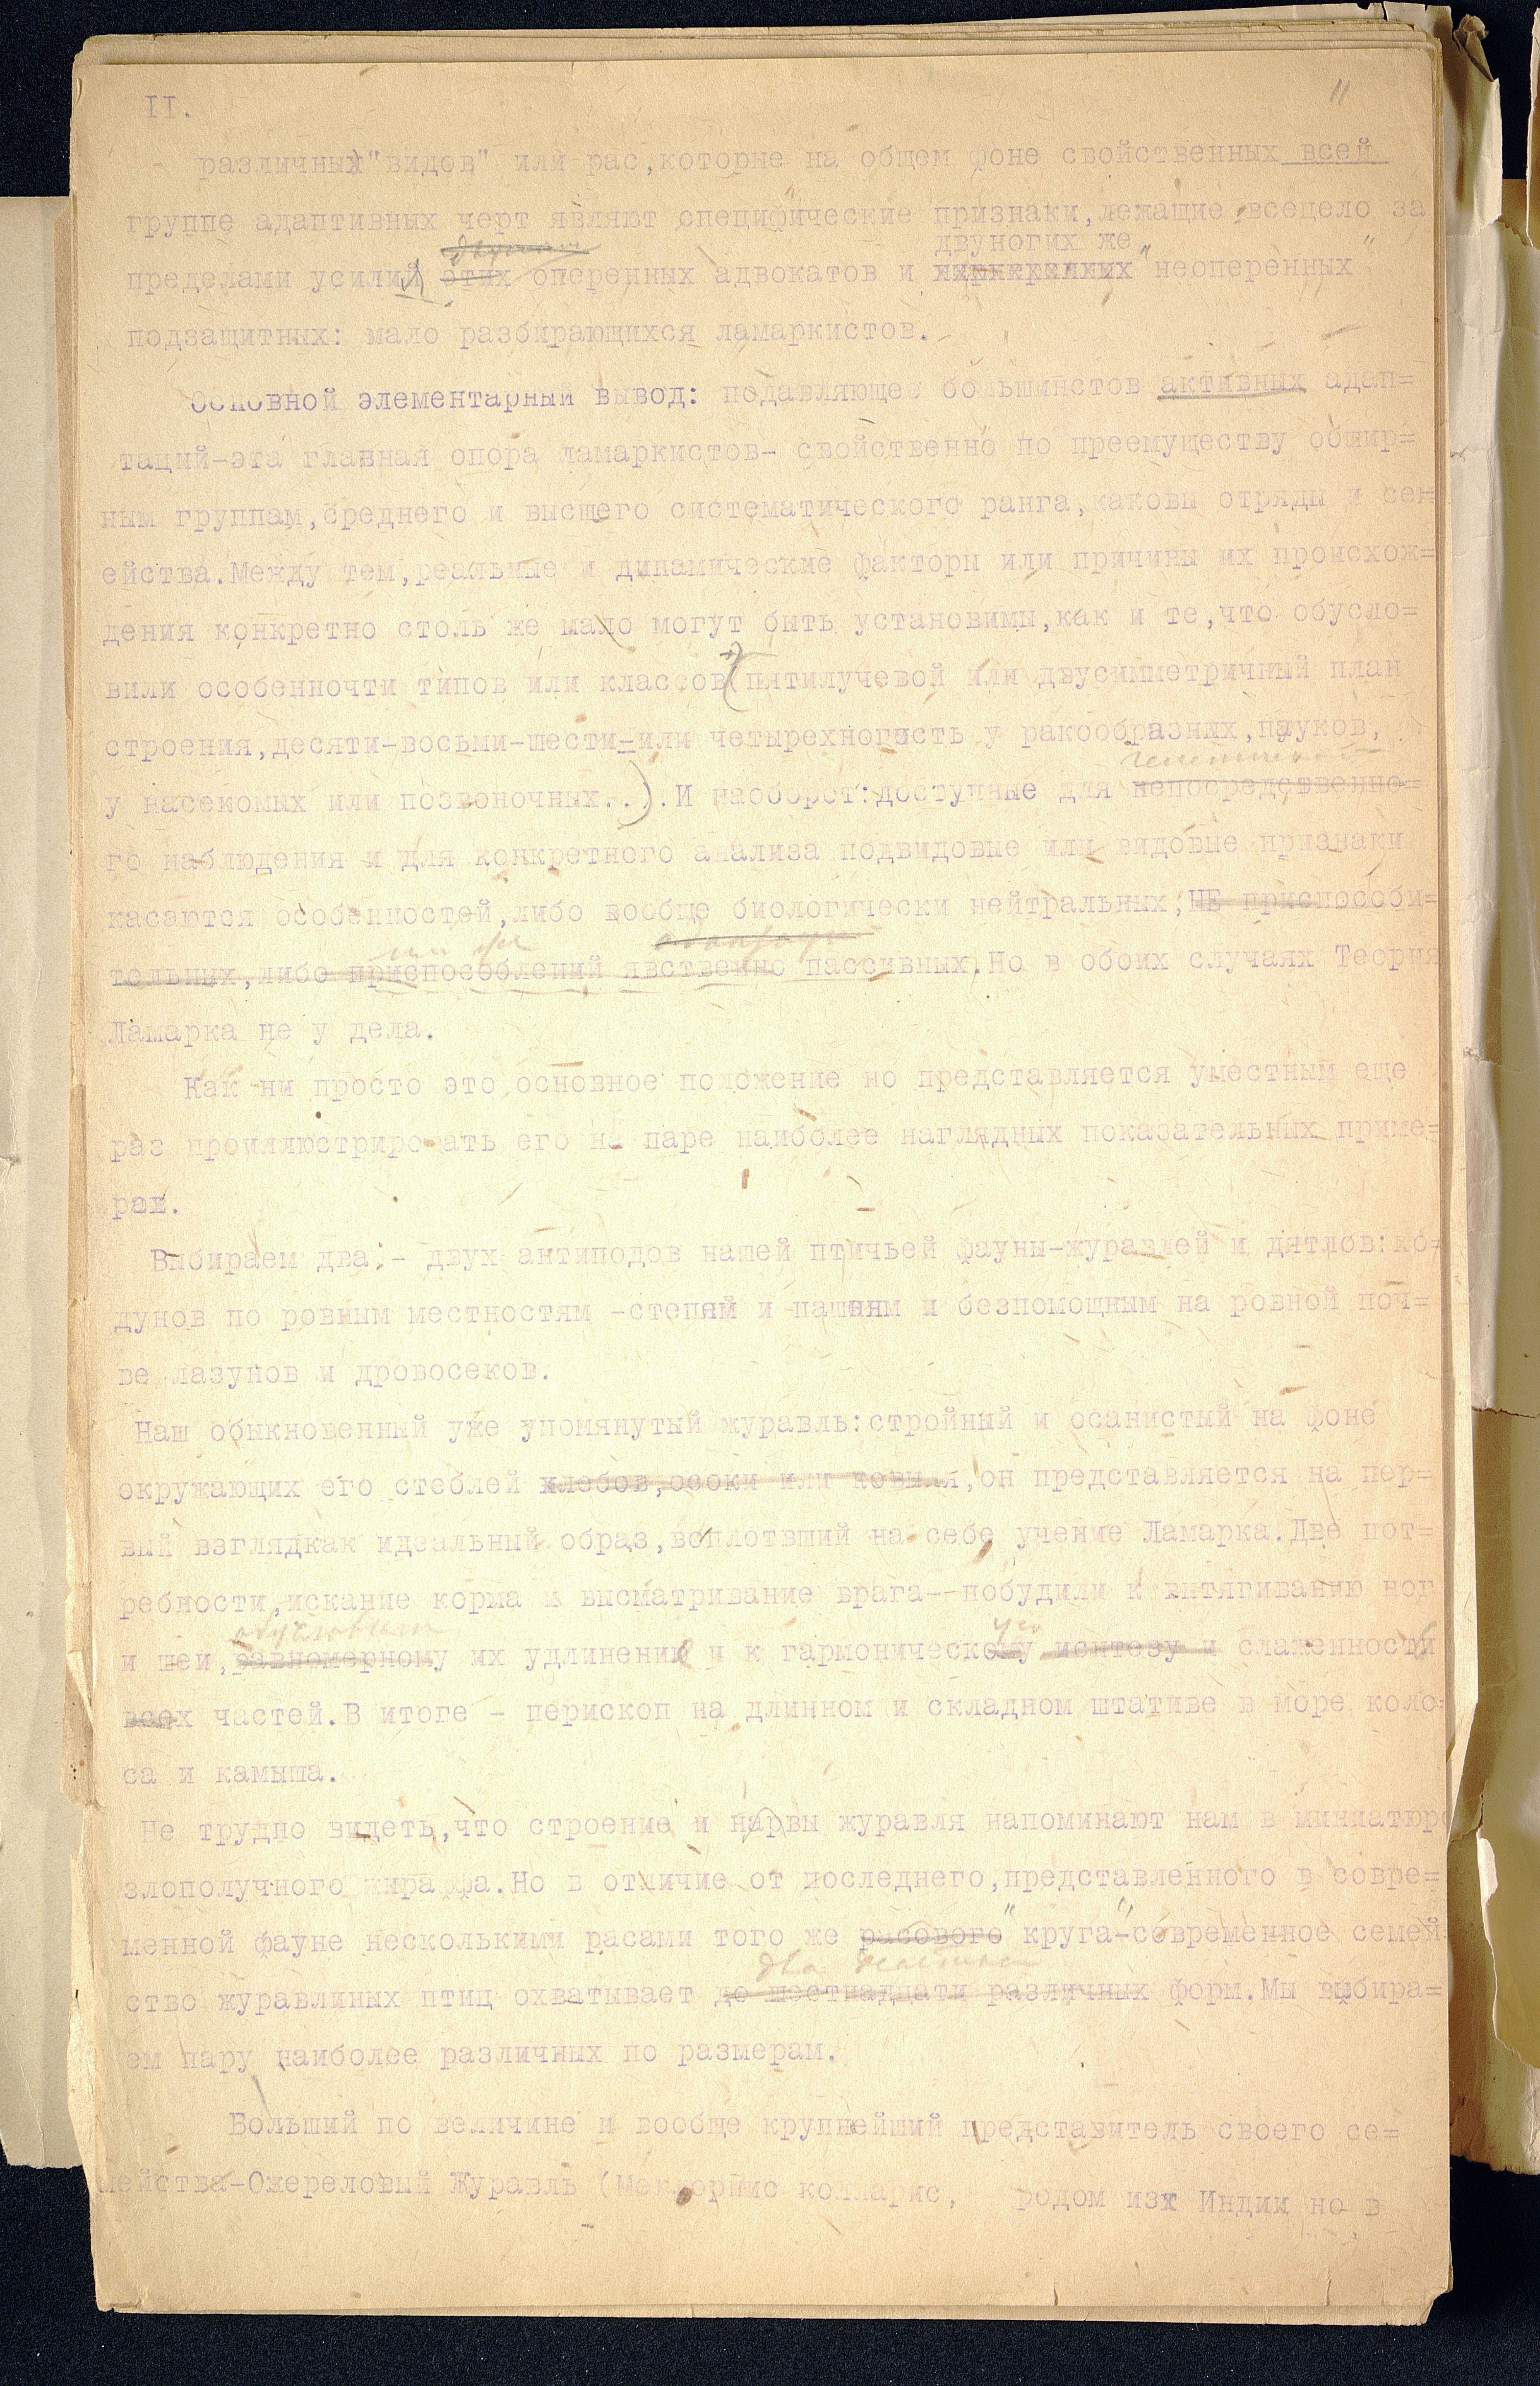 II.
11
различных "видов" или рас,которые на общем фоне свойственных всей
группе адаптивных черт являют специфические признаки,лежащие всецело за
двуногих же
пределами усилий этих оперенных адвокатов и "неоперенных"
подзащитных: мало разбирающихся ламаркистов.
Основной элементарный вывод: подавляющее большинстов активных адап=
таций-эта главная опора ламаркистов- свойственно по преемуществу обшир=
ным группам,среднего и высшего систематического ранга,каковы отряды и сем
ейства.Между тем,реальные и динамические факторы или причины их происхож=
дения конкретно столь же мало могут быть установимы,как и те,что обусло=
вили особенночти типов или классов(пятилучевой или двусимметричный план
строения,десяти-восьми-шести-или четырехногость у ракообразных,пауков,
у насекомых или позвоночных..).И наоборот:доступные для непосредственно=
го наблюдения и для конкретного анализа подвидовые или видовые признаки
касаются особенностей,либо вообще биологически нейтральных,НЕ приспособи=
тельных,либо приспособлений явственно пассивных.Но в обоих случаях Теория
Ламарка не у дела.
Как ни просто это основное положение но представляется уместным еще
раз проиллюстрировать его на паре наиболее наглядных показательных приме=
рах.
Выбираем два:- двух антиподов нашей птичьей фауны-журавлей и дятлов:хо=
дунов по ровным местностям -степей и пашням и безпомощным на ровной поч=
ве лазунов и дровосеков.
Наш обыкновенный уже упомянутый журавль:стройный и осанистый на фоне
окружающих его стеблей хлебов,осоки или ковыля,он представляется на пер=
вый взглядкак идеальный образ,воплотвший на себе учение Ламарка.Две пот=
ребности,искание корма и высматривание врага--побудили к вытягиванию ног
и шеи,равномерному их удлинению и к гармоническому синтезу и слаженности
всех частей.В итоге - перископ на длинном и складном штативе в море коло=
са и камыша.
Не трудно видеть,что строение и нарвы журавля напоминают нам в миниатюре
злополучного жираффа.Но в отличие от последнего,представленного в совре=
менной фауне несколькими расами того же расового "круга"-современное семей
два десятка
ство журавлиных птиц охватывает до шестнадцати различных форм.Мы выбира=
ем пару наиболее различных по размерам.
Больший по величине и вообще крупнейший представитель своего се=
мейства-Ожереловый Журавль ( колларис, родом из Индии но в